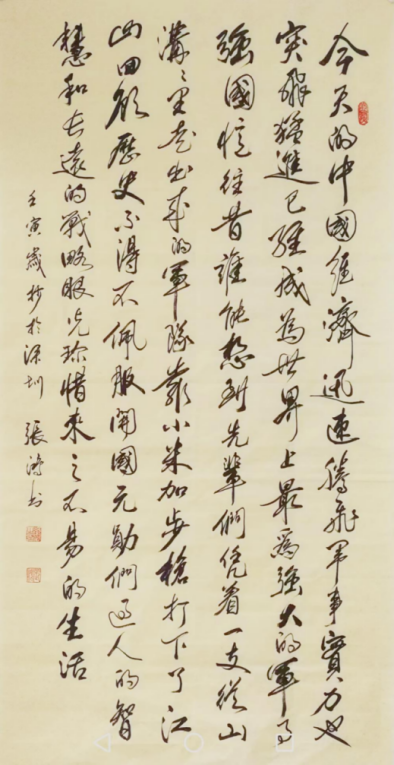 今天的中國經濟迅速騰飛軍事實力也
突飛猛進已經成為世界上最為強大的軍事
強國憶往昔誰能想到先輩們凭着一支從山
溝溝里走出來的軍隊靠小米加步槍打下了江
山回顧歷史不得不佩服開國元勛們過人的智
慧和長遠的戰略眼光珍惜來之不易的生活
壬寅歲抄於深圳 張濤書